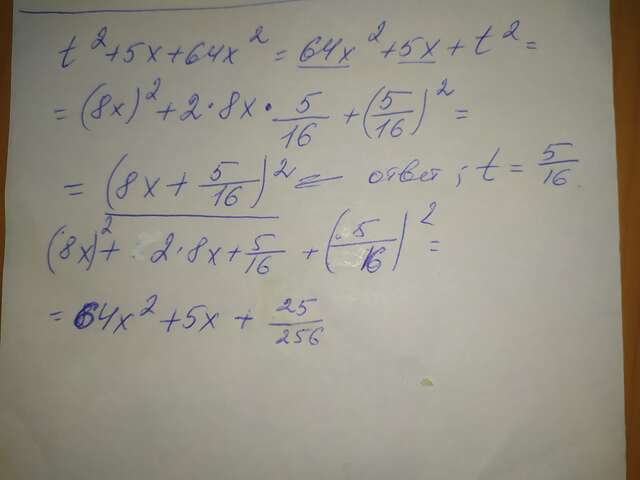 t² + 5x + 64x² = 64x² + 5x + t² =
= (8x)² + 2·8x· 5/16 + (5/16)² =
= (8x + 5/16)² ⇐ ответ; t = 5/16
(8x)² + 2·8x + 5/16 + (5/16)² =
= 64x² + 5x + 25/256